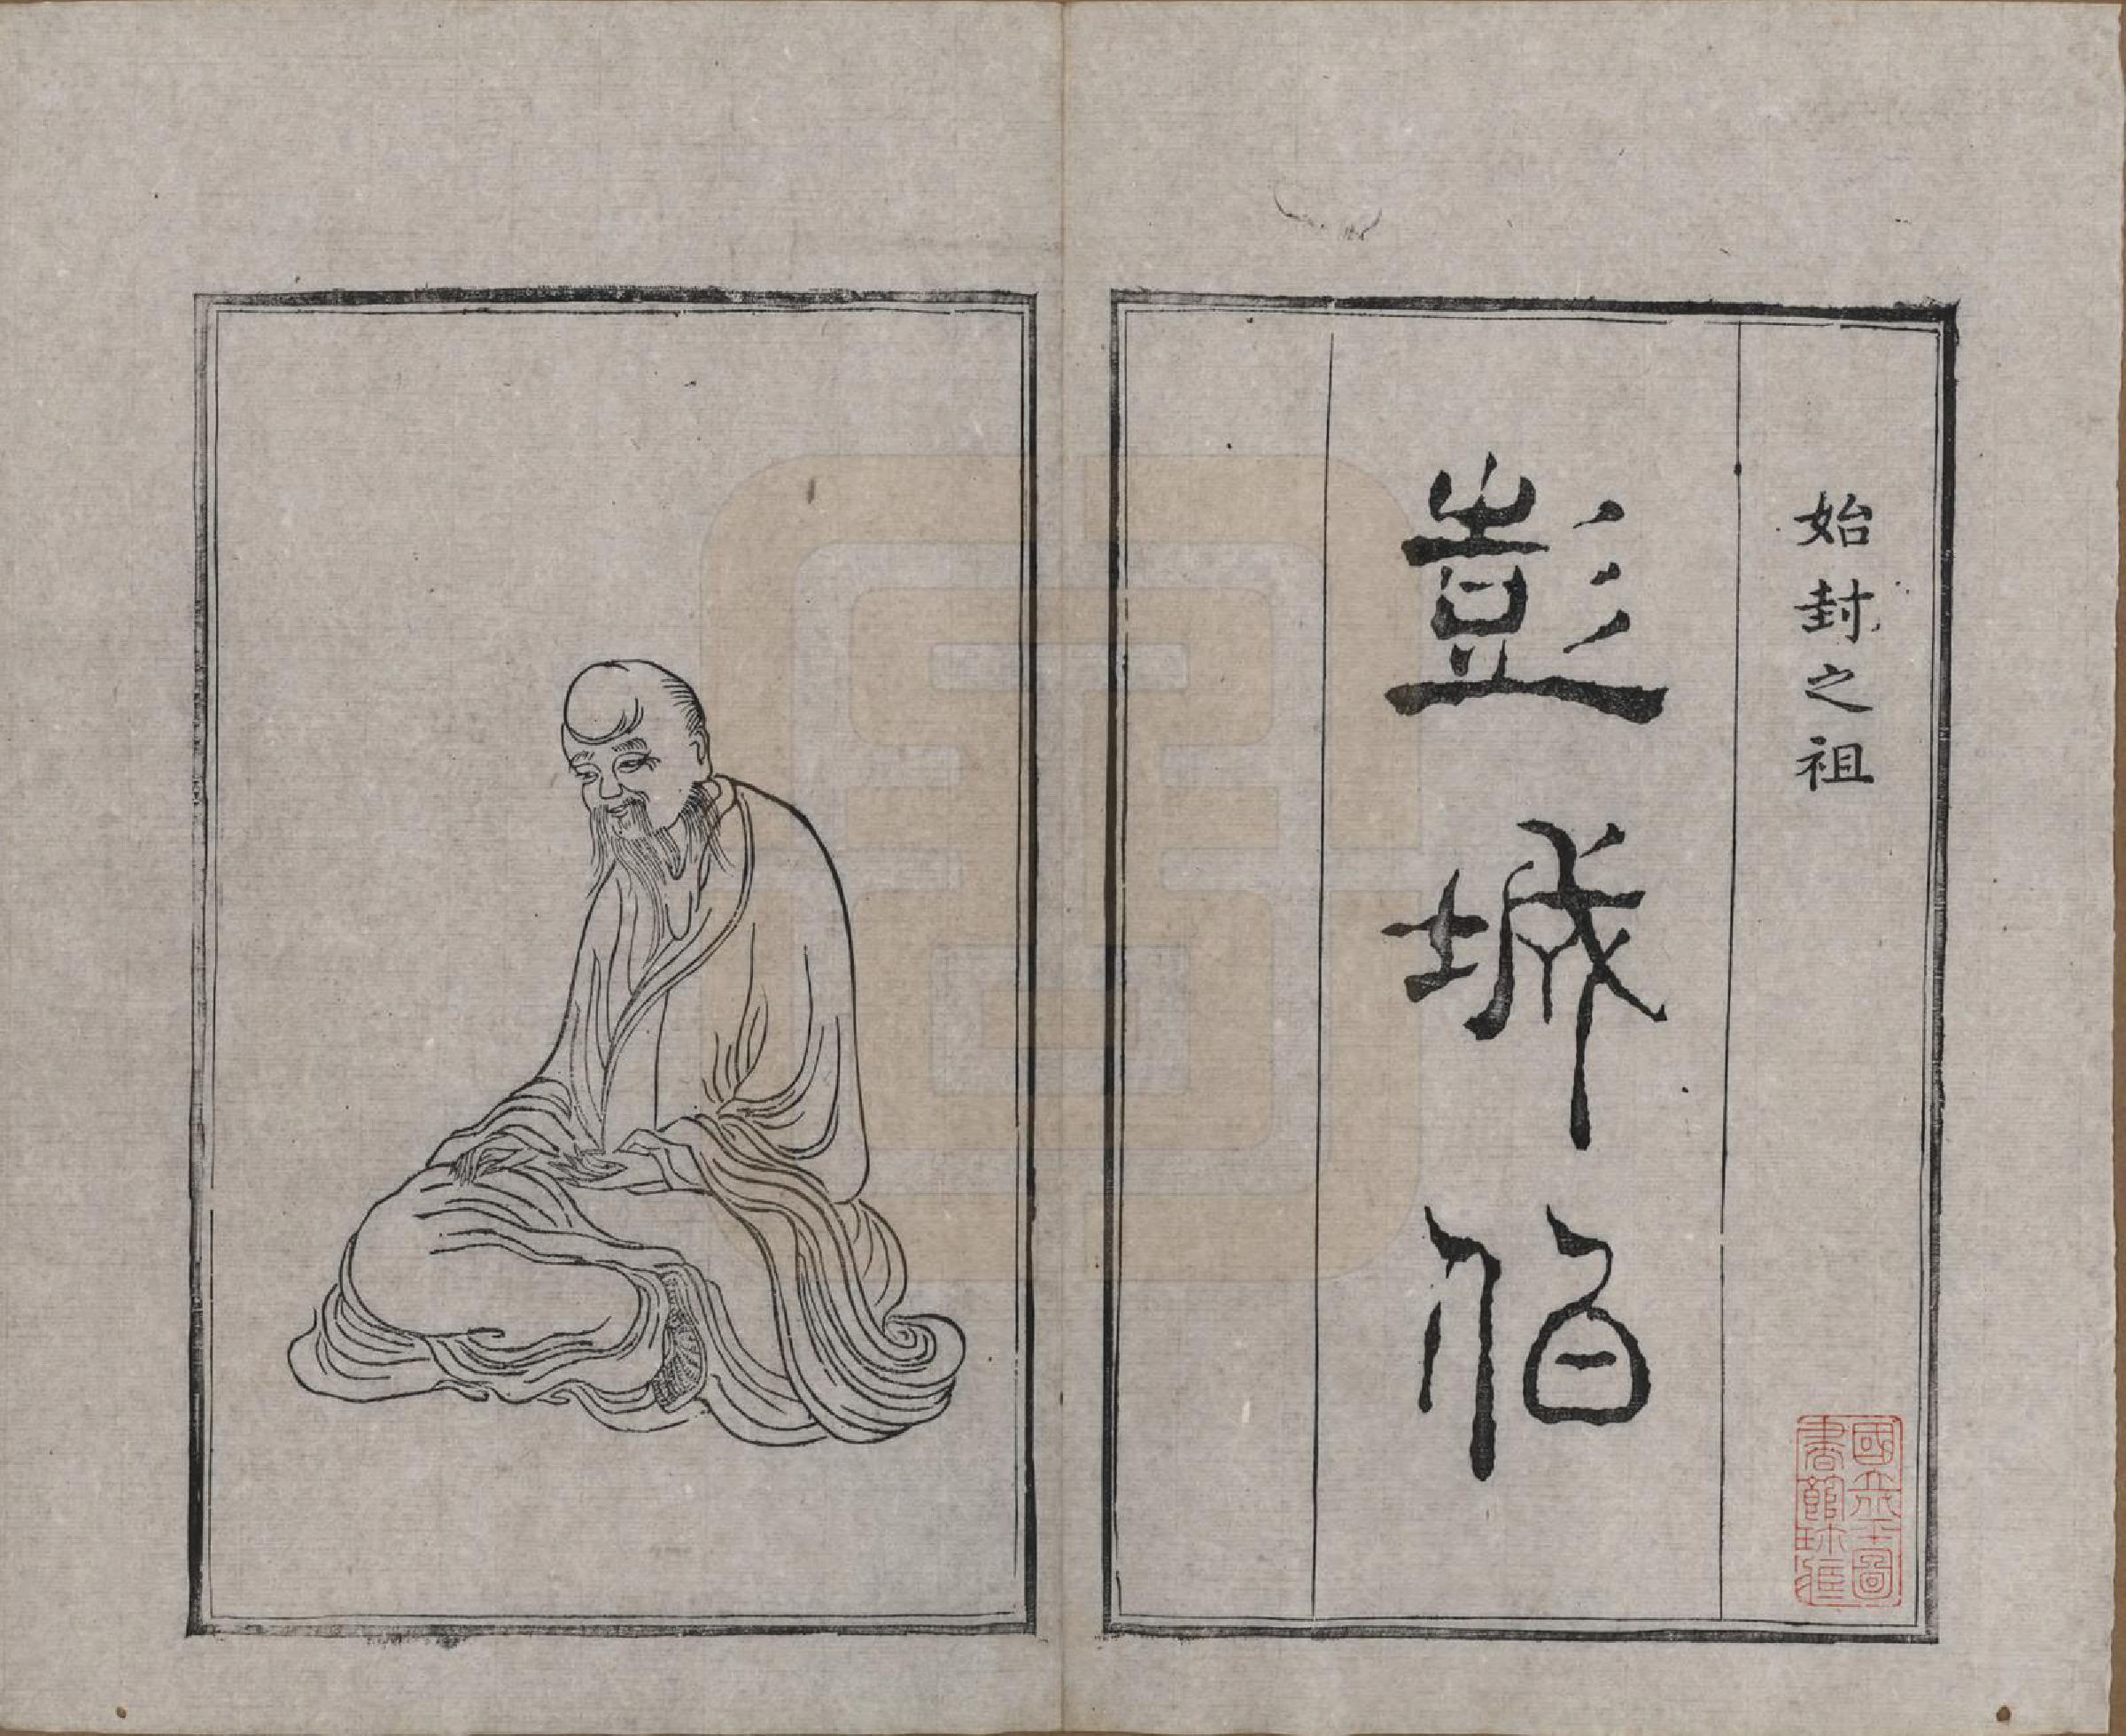 始封之祖
彭城伯
國立圖
書館珍藏